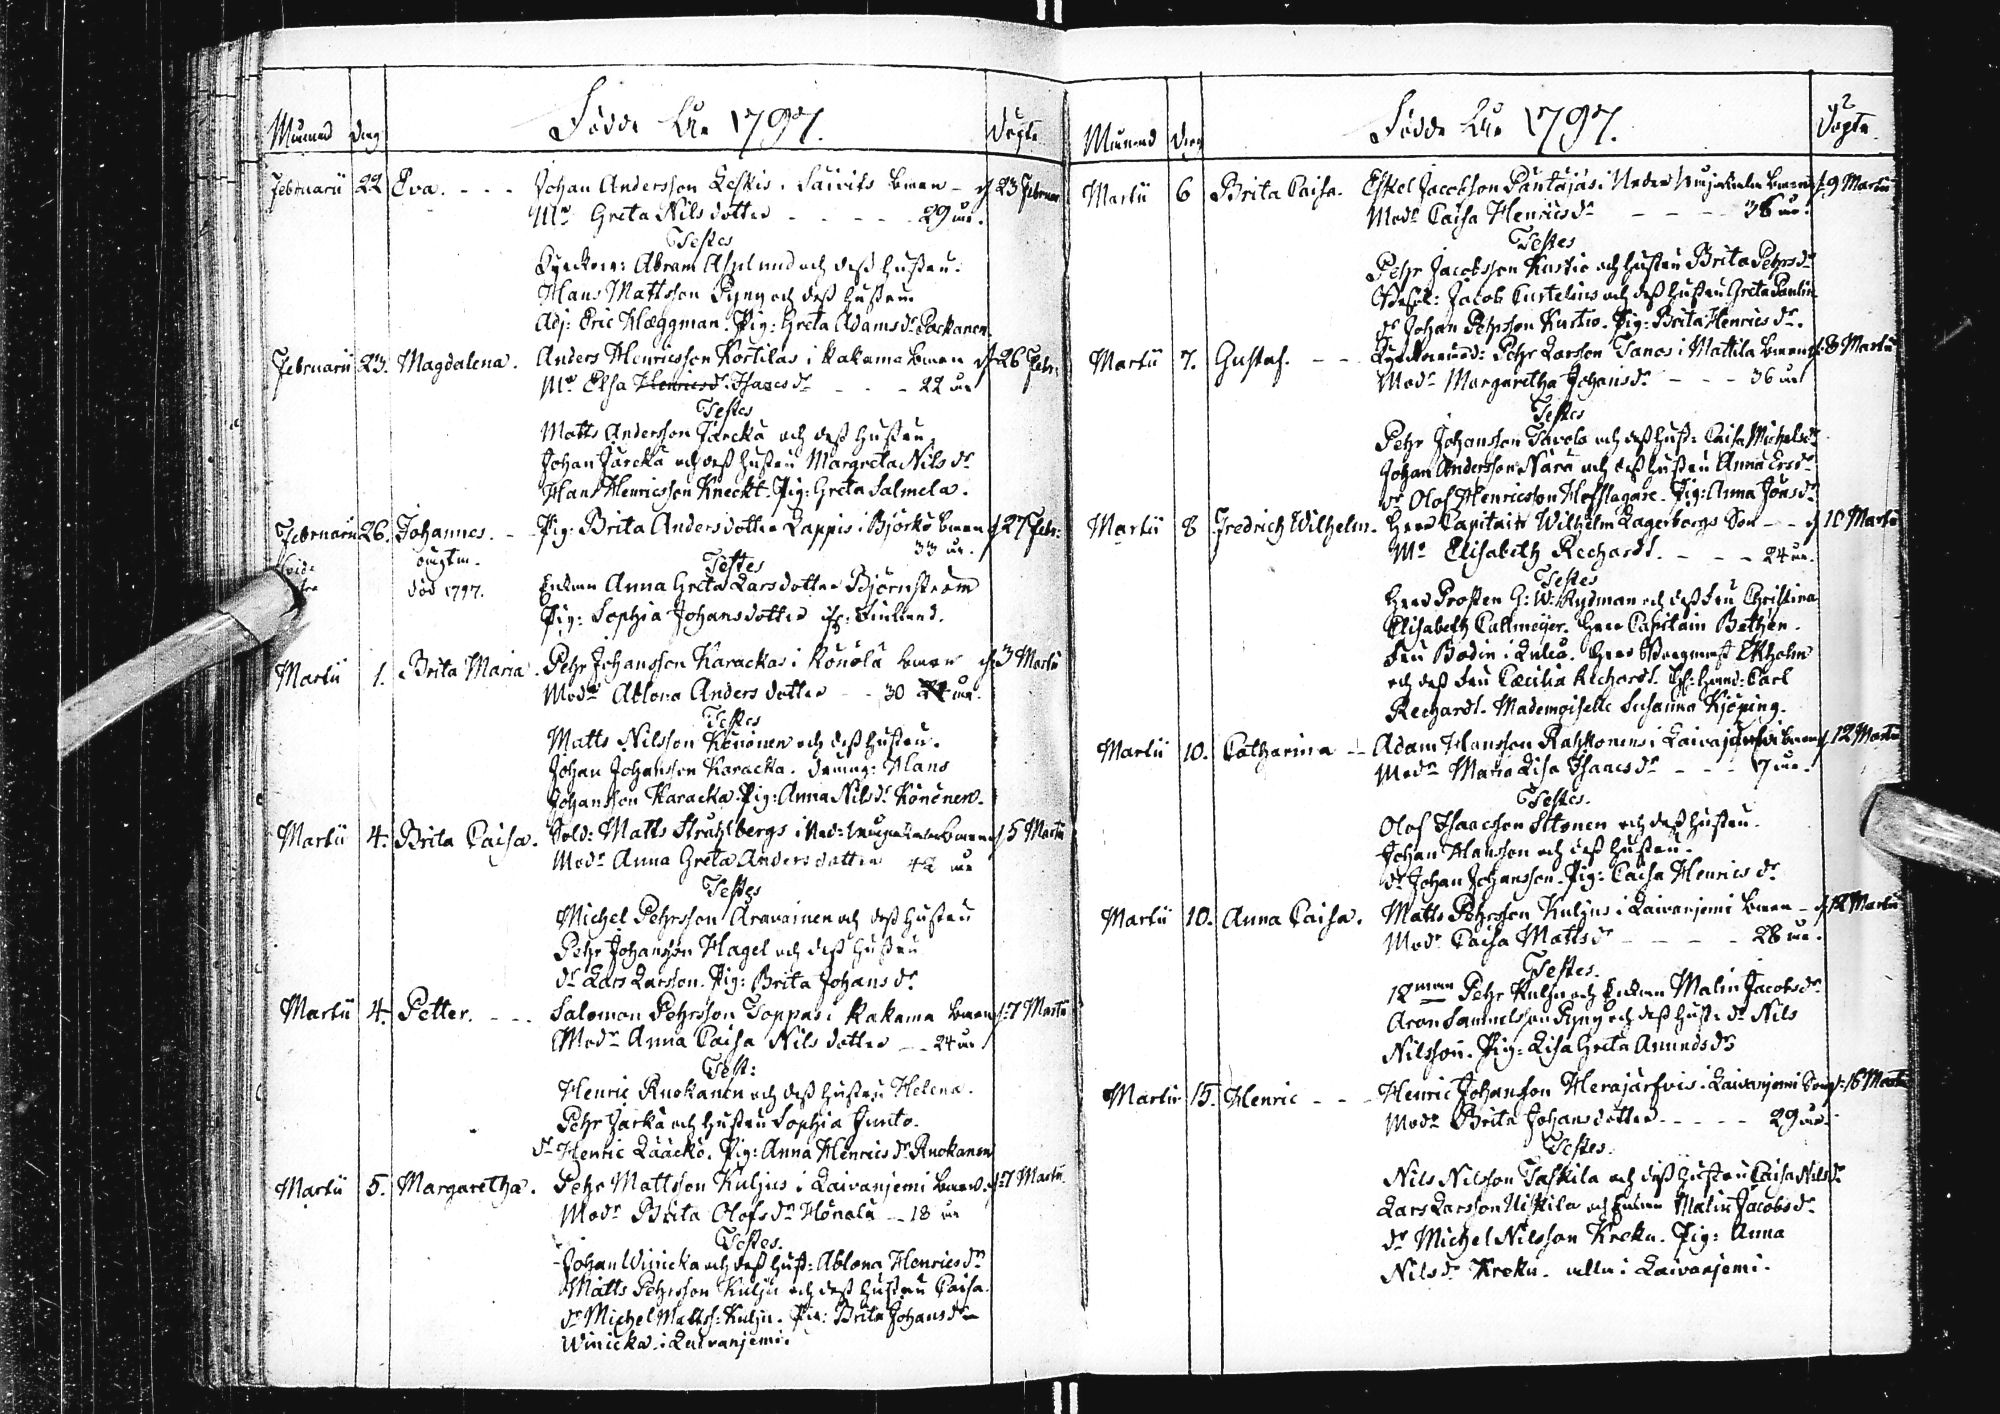 Månad Dag Födde År 1797. Döpte
Februarii 22 Eva. Johan Andersson Keskis i Saivits barn d 23 Februar
Mr Greta Nils dotter 29 år.
Testes
Abram Asplund och dess hustru.
Hans Mattsson Pyny och dess hustru
Adj: Eric Hæggman. Pig: Greta Adams dr Packanen.
Februarii 23. Magdalena. Anders Henricsson Kortilas i Kakama barn d 26 Febr:
Mr Elsa Henricsdr Isaacs dr 22 år
Testes
Matts Andersson Järckä och dess hustru
Johan Järckä och dess hustru Margreta Nils dr
Hans Henricsson Kneckt. Pig: Greta Salmela.
Februarii 26. Johannes. Pig: Brita Anders dotter Lappis i Björkö barn d 27 Febr:
oägta. 33 år.
Testes
död 1797. Enkan Anna Greta Lars dotter Björnström
Pig: Sophia Johans dotter ifr: Finland.
Martii 1. Brita Maria. Pehr Johansson Karackas i Könölä barn d 3 Martii
Modr Ablona Anders dotter 30 år.
Testes
Matts Nilsson Könönen och dess hustru.
Johan Johansson Karacka. dräng: Hans
Johansson Karacka. Pig: Anna Nils dr Könönen.
Martii 4. Brita Caisa. Sold: Matts Strahlbergs i Ned: barn d 5 Martii
Modr Anna Greta Anders dotter 42 år
Testes
Michel Pehrsson Aravainen och dess hustru
Pehr Johansson Hagel och dess hustru
dr Lars Larsson. Pig: Brita Johans dr
Martii 4. Petter. Salomon Pehrsson Toppas i Kakama barn d: 7 Martii
Modr Anna Caisa Nils dotter 24 år
Test:
Henric Ruokanen och dess hustru Helena.
Pehr Jarkä och hustru Sophia Junto.
dr Henric Lääckö. Pig: Anna Henrics dr Ruokanen
Martii 5. Margaretha. Pehr Mattsson Kuljus i Laivanjemi barn d: 7 Martii.
Modr Brita Olofs dr Hönälä 18 år
Testes.
Johan Winicka och dess hust: Ablona Henrics dr
Matts Pehrsson Kulju och dess hustru Caisa.
dr Michel Matts: Kulju. Pig: Brita Johans dr
Winicka i Laivanjemi.
Månad Dag Födde År 1797. Döpte
Martii 6 Brita Caisa. Eskel Jacobson Pantajas i Neder barn d 9 Martii
Modr Caisa Henrics dr 36 år.
Testes
Pehr Jacobsson Kustio och hustru Brita Pehrs dr
Jacob Curtelius och dess hustru Greta Paulin
dr Johan Pehrsson Kustio. Pig: Brita Henrics dr.
Martii 7. Gustaf. Pehr Larsson Janos i Mattila barn d: 8 Martii
Modr Margaretha Johans dr 36 år
Testes
Pehr Johansson Jacob och dess hust: Caisa Michels dr
Johan Andersson Närä och dess hustru Anna Ers dr
dr Olof Henricsson Hofslagare. Pig: Anna Jöns dr
Martii 8 Fredrich Wilhelm. Herr Capitain Wilhelm Lagerborgs Son d 10 Martii
Mr Elisabeth Rechardt. 24 år.
Testes
Herr Prosten G: W: Rydman och dess Fru Christina
Elisabeth Cattmeijer. Herr Capitain Bethen.
Fru Bodin i Luleå. Herr Ekholm
och dess Fru Cæcilia Rechardt. Carl
Rechardt. Mademoiselle Susanna Kjöping.
Martii 10. Catharina Adam Hansson Rahkonens i Laivajärfvi barn d 12 Martii
Modr Maria Lisa Isaacs dr 17 år.
Testes.
Olof Isaacsson Ittonen och dess hustru.
Johan Hansson och dess hustru.
dr Johan Johansson. Pig: Caisa Henrics dr
Martii 10. Anna Caisa. Matts Pehrsson Kuljus i Laivanjemi barn d 12 Martii
Modr Caisa Matts dr 28 år.
Testes.
12man Pehr Kulju och Enkan Malin Jacobs dr
Aron Samuelsson Pyny och dess hust: dr Nils
Nilsson. Pig: Lisa Greta Amunds dr
Martii 15. Henric Henric Johansson Herajärfvis i Laivanjemi Son d: 16 Martii
Modr Brita Johans dotter 29 år.
Testes.
Nils Nilsson Taskila och dess hustru Caisa Nils dr
Lars Larsson Uiskila och Enkan Malin Jacobs dr
dr Michel Nilsson Kreku. Pig: Anna
Nils dr Kreku. alla i Laivanjemi.